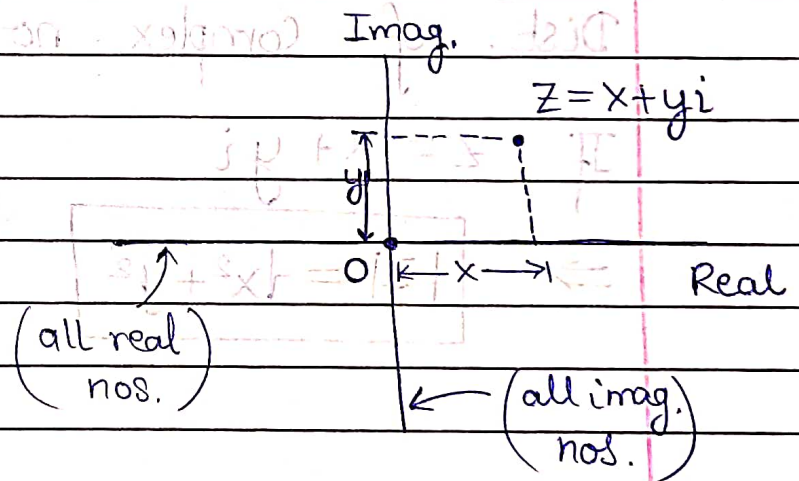 Imag.
Z = x+yi
y
O x Real
(all real nos.)
(all imag. nos.)